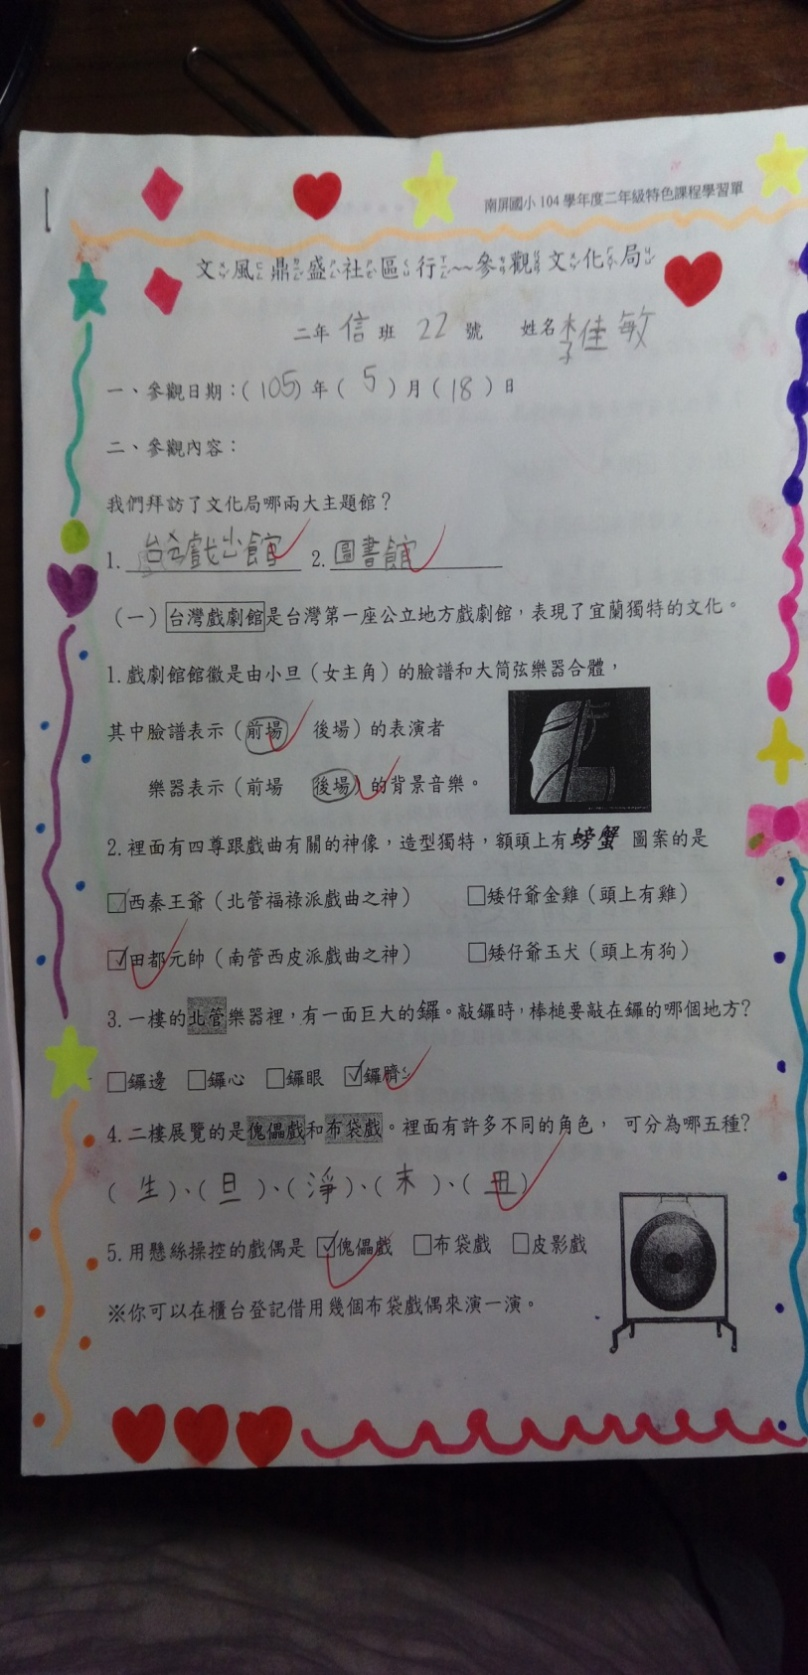 南屏國小104學年度二年級特色課程學習單
文風鼎盛社區行~~參觀文化局
二年 信 班 22 號 姓名 李佳敏
一、參觀日期：(105)年( 5 )月(18)日
二、參觀內容：
我們拜訪了文化局哪兩大主題館？
1. 館 2. 圖書館
（一）台灣戲劇館是台灣第一座公立地方戲劇館，表現了宜蘭獨特的文化。
1.戲劇館館徽是由小旦（女主角）的臉譜和大筒弦樂器合體，
其中臉譜表示（前場 後場）的表演者
樂器表示（前場 後場）的背景音樂。
2.裡面有四尊跟戲曲有關的神像，造型獨特，額頭上有螃蟹 圖案的是
□西秦王爺（北管福祿派戲曲之神） □矮仔爺金雞（頭上有雞）
☑田都元帥（南管西皮派戲曲之神） □矮仔爺玉犬（頭上有狗）
3.一樓的北管樂器裡，有一面巨大的鑼。敲鑼時，棒槌要敲在鑼的哪個地方？
□鑼邊 □鑼心 □鑼眼 ☑鑼臍
4.二樓展覽的是傀儡戲和布袋戲。裡面有許多不同的角色， 可分為哪五種？
( 生 )、( 旦 )、( 淨 )、( 末 )、( 丑 )
5.用懸絲操控的戲偶是 ☑傀儡戲 □布袋戲 □皮影戲
※你可以在櫃台登記借用幾個布袋戲偶來演一演。